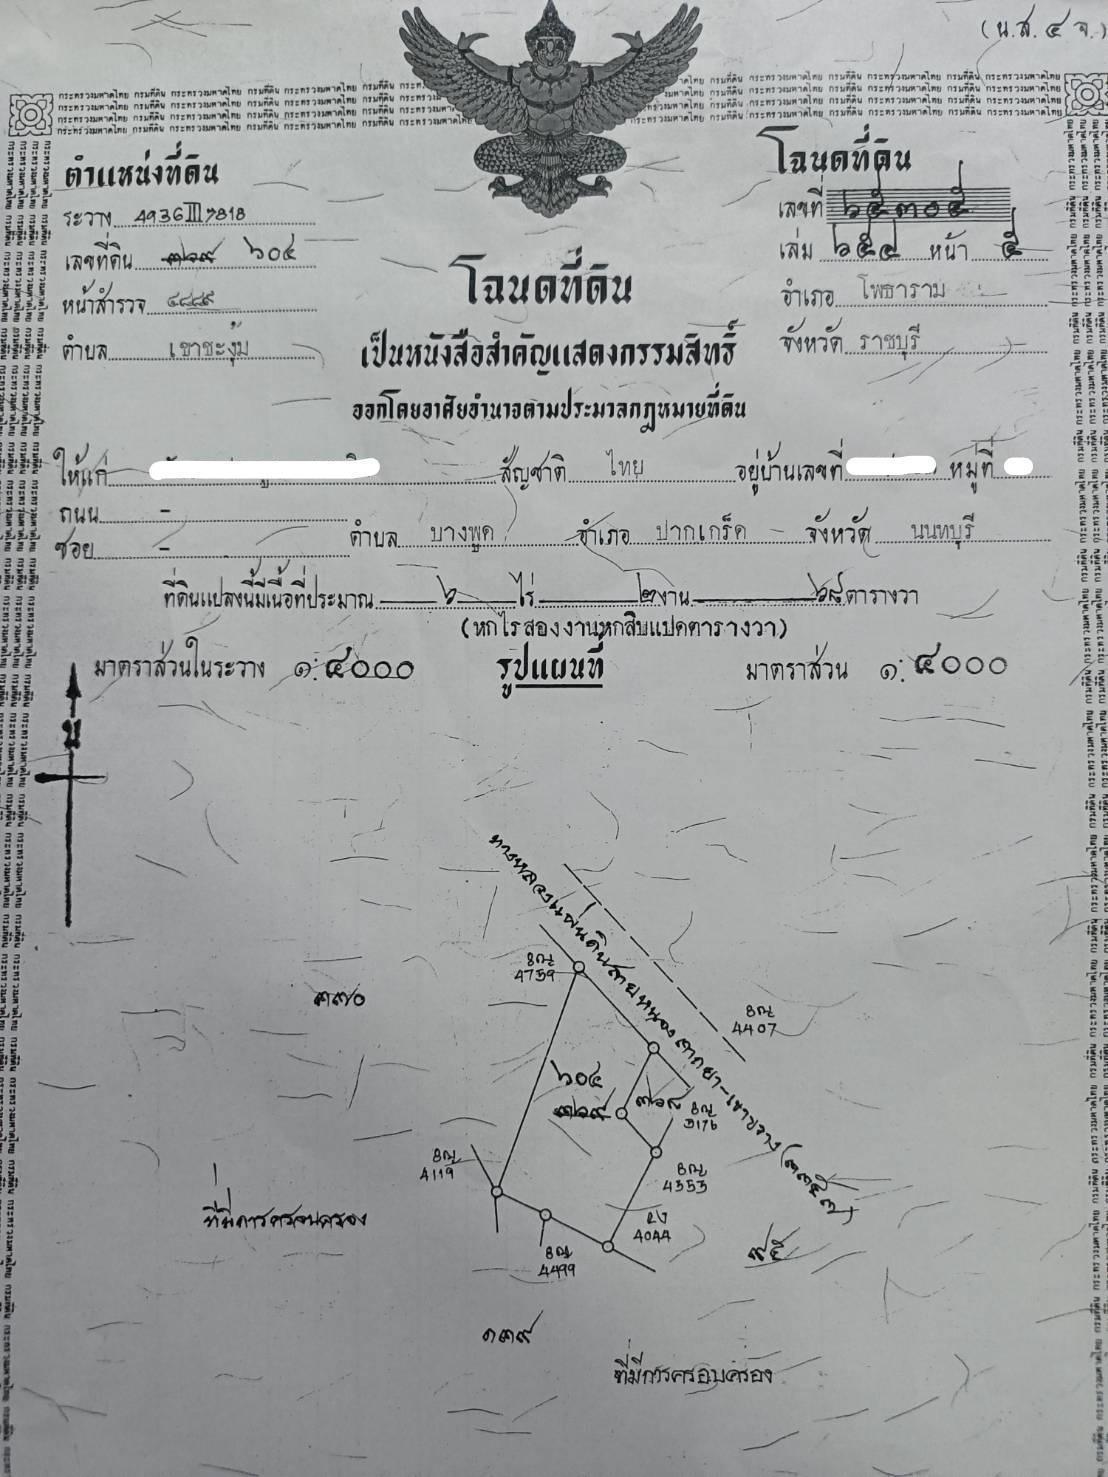 (น.ส. ๔ จ.)
กระทรวงมหาดไทย กรมที่ดิน กระทรวงมหาดไทย กรมที่ดิน กระทรวงมหาดไทย กรมที่ดิน
ตำแหน่งที่ดิน
ระวาง 4936 III 7818
เลขที่ดิน ๓๖๙ ๖๐๔
หน้าสำรวจ ๔๔๘๙
ตำบล เขาชะงุ้ม
โฉนดที่ดิน
เลขที่ ๖๕๓๐๕
เล่ม ๖๕๔ หน้า ๕
อำเภอ โพธาราม
จังหวัด ราชบุรี
โฉนดที่ดิน
เป็นหนังสือสำคัญแสดงกรรมสิทธิ์
ออกโดยอาศัยอำนาจตามประมวลกฎหมายที่ดิน
ให้แก่ สัญชาติ ไทย อยู่บ้านเลขที่ หมู่ที่
ถนน -
ซอย - ตำบล บางพูด อำเภอ ปากเกร็ด จังหวัด นนทบุรี
ที่ดินแปลงนี้มีเนื้อที่ประมาณ ๖ ไร่ ๒ งาน ๖๘ ตารางวา
(หกไร่สองงานหกสิบแปดตารางวา)
มาตราส่วนในระวาง ๑:๔๐๐๐ รูปแผนที่ มาตราส่วน ๑:๔๐๐๐
น
ทางหลวงแผ่นดินสายหนองตากยา-เขาขวาง (๓๓๕๗)
ธณ
4759
๓๗๐
ธณ
4407
๖๐๔
๓๖๙ ๓๖๘
ธณ
3176
ธณ
4119
ธณ
4353
4044
ที่มีการครอบครอง
ธณ
4499
๙๕
๑๓๙
ที่มีการครอบครอง